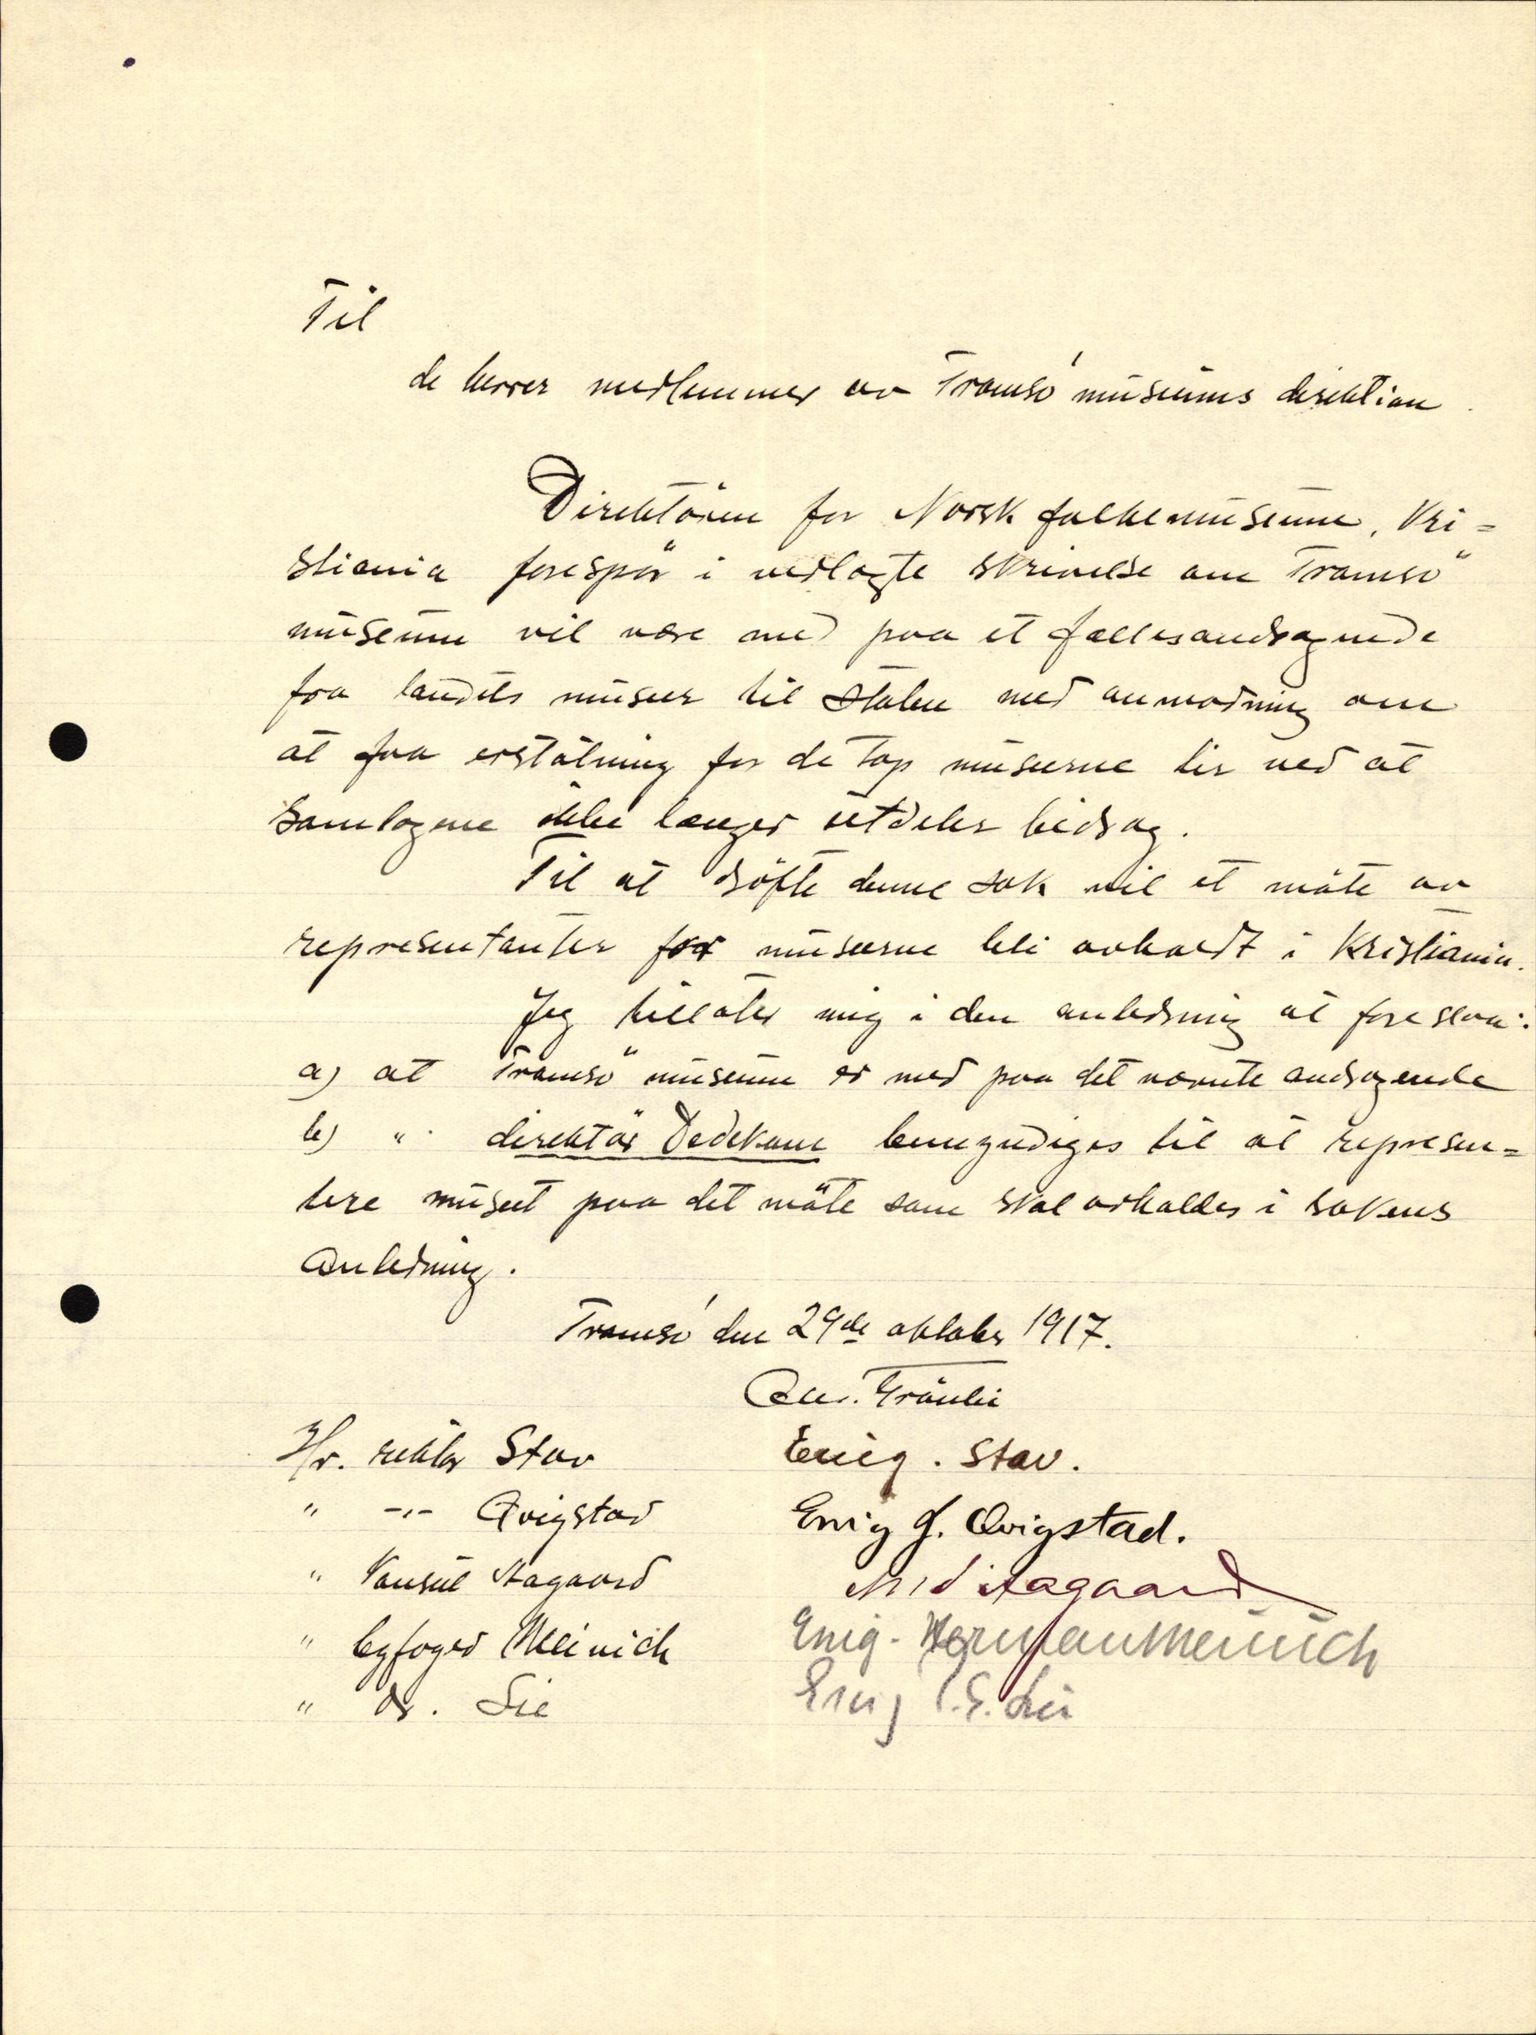 Til
de herrer medlemmer av Tromsö museums direktion.
Direktören for Norsk folkemuseum, Kri=
stiania forespör i vedlagte skrivelse om Tromsö
museum vil være med paa et fællesandragende
fra landets museer til staten med anmodning om
at faa erstatning for de tap museerne lir ved at
samlagene ikke længer utdeler bidrag.
Til at dröfte denne sak vil et möte av
representanter for museerne bli avholdt i Kristiania.
Jeg tillater mig i den anledning at foreslaa:
a) at Tromsö museum er med paa det nævnte andragende
b) " direktör Dedekam bemyndiges til at represen=
tere museet paa det möte som skal avholdes i sakens
anledning.
Tromsö den 29de oktober 1917.
Hr. rektor Stav Enig. Stav.
" -"- Qvigstad Enig J. Qvigstad.
" Konsul Aagaard Aagaard
" byfoged Meinich Enig. Herman Meinich
" dr. Lie Enig Lie